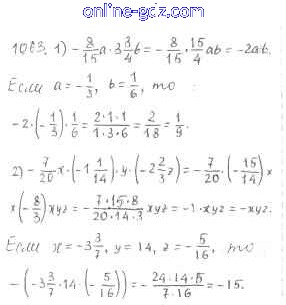 online-gdz.com
1063. 1) -8/15 a · 3 3/4 b = -8/15 · 15/4 ab = -2ab.
Если a = -1/3, b = 1/6, то
-2 · (-1/3) · 1/6 = 2·1·1/1·3·6 = 2/18 = 1/9.
2) -7/20 x · (-1 1/14) · y · (-2 2/3 z) = -7/20 · (-15/14) ×
× (-8/3) xyz = -7·15·8/20·14·3 xyz = -1 · xyz = -xyz.
Если x = -3 3/7, y = 14, z = -5/16, то
-(-3 3/7 · 14 · (-5/16)) = -24·14·5/7·16 = -15.